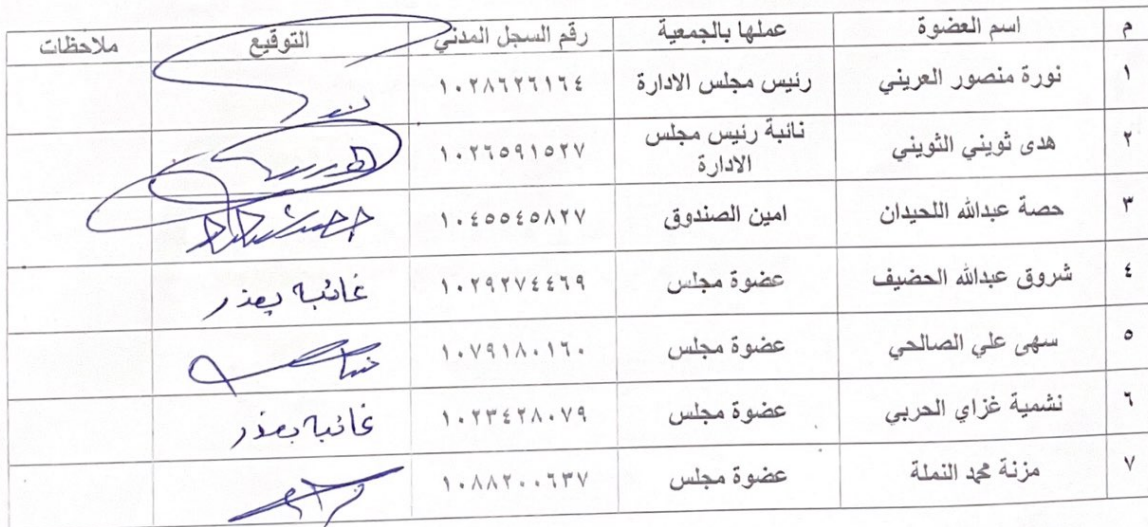 م اسم العضوة عملها بالجمعية رقم السجل المدني التوقيع ملاحظات
١ نورة منصور العريني رئيس مجلس الادارة ١٠٢٨٦٢٦١٦٤
٢ هدى ثويني الثويني نائبة رئيس مجلس الادارة ١٠٢٦٥٩١٥٢٧
٣ حصة عبدالله اللحيدان امين الصندوق ١٠٤٥٥٤٥٨٢٧
٤ شروق عبدالله الحضيف عضوة مجلس ١٠٢٩٢٧٤٤٦٩ غائبه بعذر
٥ سهى علي الصالحي عضوة مجلس ١٠٧٩١٨٠١٦٠
٦ نشمية غزاي الحربي عضوة مجلس ١٠٢٣٤٢٨٠٧٩ غائبه بعذر
٧ مزنة محمد النملة عضوة مجلس ١٠٨٨٢٠٠٦٣٧